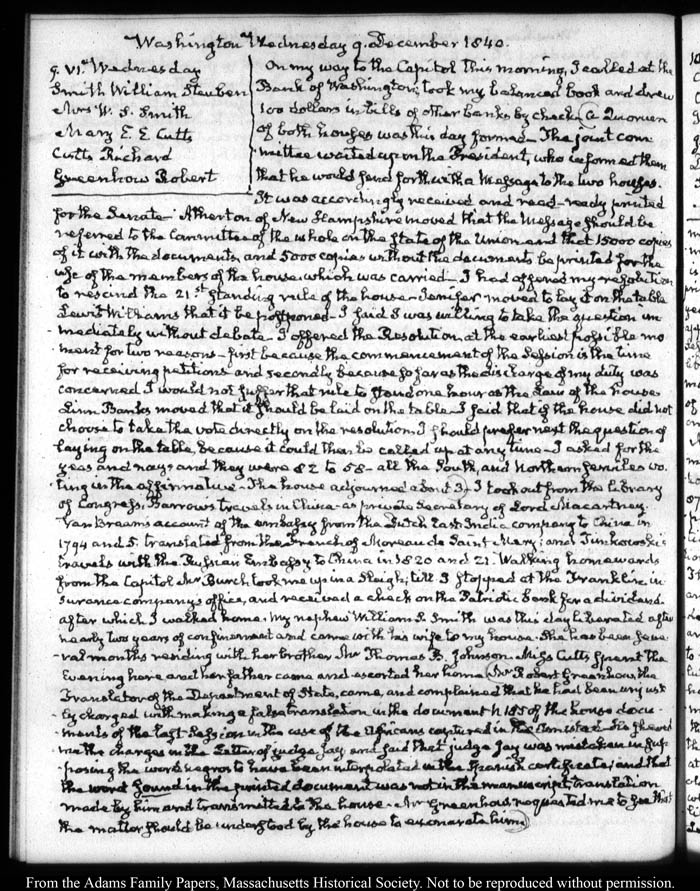 Washington Wednesday 9. December 1840.
9. VI. Wednesday
Smith William Steuben
Mrs W. S. Smith
Mary E. E. Cutts
Cutts Richard
Greenhow Robert
On my way to the Capitol this morning, I called at the
Bank of Washington; took my balanced book and drew
100 dollars in bills of other banks by check. A Quorum
of both houses was this day formed. The joint com-
mittee waited upon the President, who informed them
that he would send forthwith a Message to the two houses.
It was accordingly received and read ready printed
for the Senate. Atherton of New Hampshire moved that the Message should be
referred to the Committee of the whole on the State of the Union and that 15000 copies
of it with the documents, and 5000 copies without the documents be printed for the
use of the members of the house. which was carried. I had offered my resolution
to rescind the 21st standing rule of the house. Jenifer moved to lay it on the table
Lewis Williams that it be postponed. I said I was willing to take the question im-
mediately without debate. I offered the Resolution at the earliest possible mo
ment for two reasons. first because the commencement of the Session is the time
for receiving petitions and secondly because so far as the discharge of my duty was
concerned I would not suffer that rule to stand one hour as the Law of the house
Linn Banks moved that it should be laid on the table. I said that if the house did not
choose to take the vote directly on the resolution I should prefer next the question of
laying on the table, because it could then be called up at any time. I asked for the
yeas and nays and they were 82 to 58. all the South, and northern serviles vo-
ting in the affirmative. The house adjourned about 3. I took out from the library
of Congress, Barrow's travels in China as private Secretary of Lord Macartney
Van Braam's account of the embassy from the Dutch East India company to China in
1794 and 5. translated from the French of Moreau de Saint Mery; and Timkowski's
travels with the Russian Embassy to China in 1820 and 21. Walking homewards
from the Capitol Mr Burch took me up in a Sleigh, till I stopped at the Franklin in-
surance company's office, and received a check on the Patriotic bank for a dividend.
after which I walked home. My nephew William S. Smith was this day liberated after
nearly two years of confinement and came with his wife to my house. She has been seve-
ral months residing with her brother Mr Thomas B. Johnson. Miss Cutts spent the
Evening here and her father came and escorted her home. Mr Robert Greenhow, the
Translator of the Department of State, came, and complained that he had been unjust
ly charged with making a false translation in the document N. 185 of the house docu-
ments of the last Session in the case of the Africans captured in the Amistad. He shewed
me the charges in the Letter of judge Jay and said that judge Jay was mistaken in sup-
posing the word negros to have been interpolated in the Spanish certificate; and that
the word sound in the printed document was not in the manuscript translation
made by him and transmitted to the house. Mr Greenhow requested me to see that
the matter should be understood by the house to exonerate him.
From the Adams Family Papers, Massachusetts Historical Society. Not to be reproduced without permission.